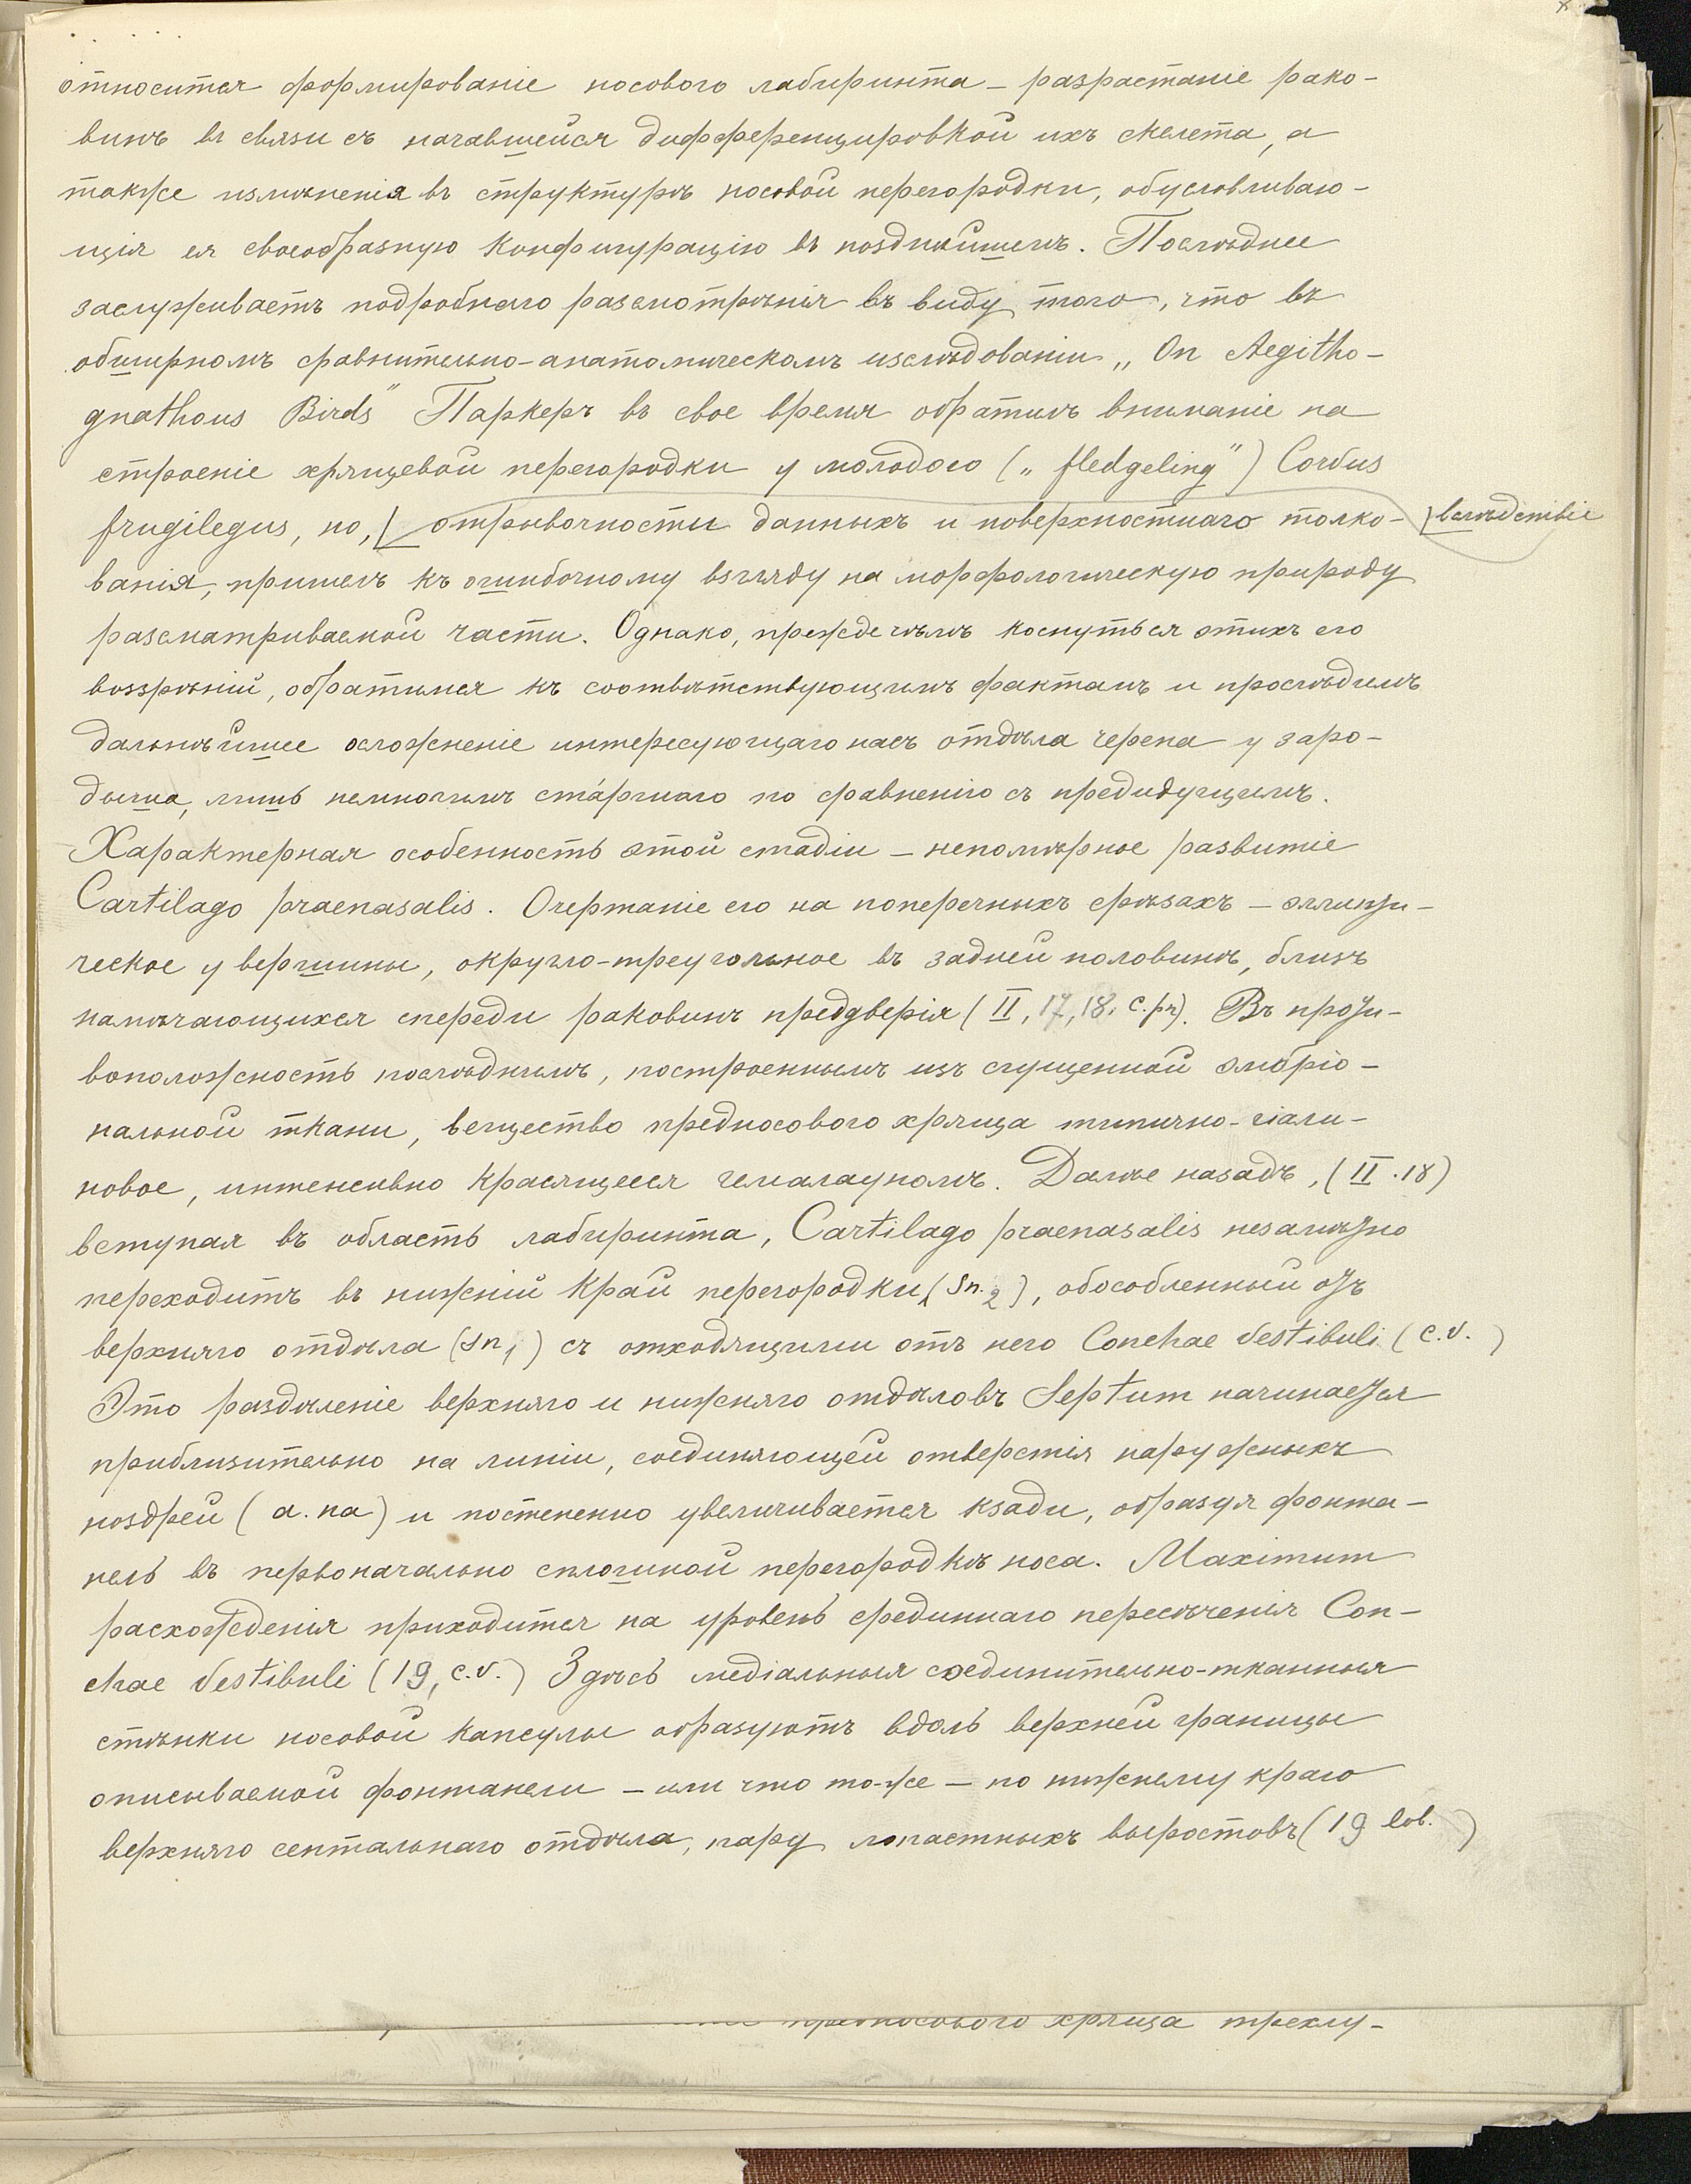 относится формированіе носового лабиринта – разрастаніе рако-
винъ въ связи съ начавшейся дифференцировкой ихъ скелета, а
также измѣненія въ структурѣ носовой перегородки, обусловливаю-
щія ея своеобразную конфигурацію въ позднѣйшемъ. Послѣднее
заслуживаетъ подробнаго разсмотрѣнія въ виду того, что въ
обширномъ сравнительно-анатомическомъ изслѣдованіи „On Aegitho-
gnathous Birds" Паркеръ въ свое время обратилъ вниманіе на
строеніе хрящевой перегородки у молодого („fledgeling") Corvus
frugilegus, но, вслѣдствіе отрывочности данныхъ и поверхностнаго толко-
ванія, пришелъ къ ошибочному взгляду на морфологическую природу
разсматриваемой части. Однако, прежде чѣмъ коснуться этихъ его
воззрѣній, обратимся къ соотвѣтствующимъ фактамъ и прослѣдимъ
дальнѣйшее осложненіе интересующаго насъ отдѣла черепа у заро-
дыша, лишь немногимъ ста́ршаго по сравненію съ предидущимъ.
Характерная особенность этой стадіи – непомѣрное развитіе
Cartilago praenasalis. Очертаніе его на поперечныхъ срѣзахъ – эллипти-
ческое у вершины, округло-треугольное въ задней половинѣ, близъ
намѣчающихся спереди раковинъ предверія (II, 17, 18. c.pn). Въ проти-
воположность послѣднимъ, построеннымъ изъ сгущенной эмбріо-
нальной ткани, вещество предносового хряща типично-гіали-
новое, интенсивно красящееся гемалауномъ. Далѣе назадъ, (II. 18)
вступая въ область лабиринта, Cartilago praenasalis незамѣтно
переходитъ въ нижній край перегородки (Sn. 2), обособленный отъ
верхняго отдѣла (Sn 1) съ отходящими отъ него Conchae Vestibuli (c.v.)
Это раздѣленіе верхняго и нижняго отдѣловъ Septum начинается
приблизительно на линіи, соединяющей отверстія наружныхъ
ноздрей (a. na) и постепенно увеличивается кзади, образуя фонта-
нель въ первоначально сплошной перегородкѣ носа. Maximum
расхожденія приходится на уровень срединнаго пересѣченія Con-
chae Vestibuli (19, c.v.) Здѣсь медіальныя соединительно-тканныя
стѣнки носовой капсулы образуютъ вдоль верхней границы
описываемой фонтанели – или что то-же – по нижнему краю
верхняго септальнаго отдѣла, пару лопастныхъ выростовъ (19 lob.)
предносового хряща